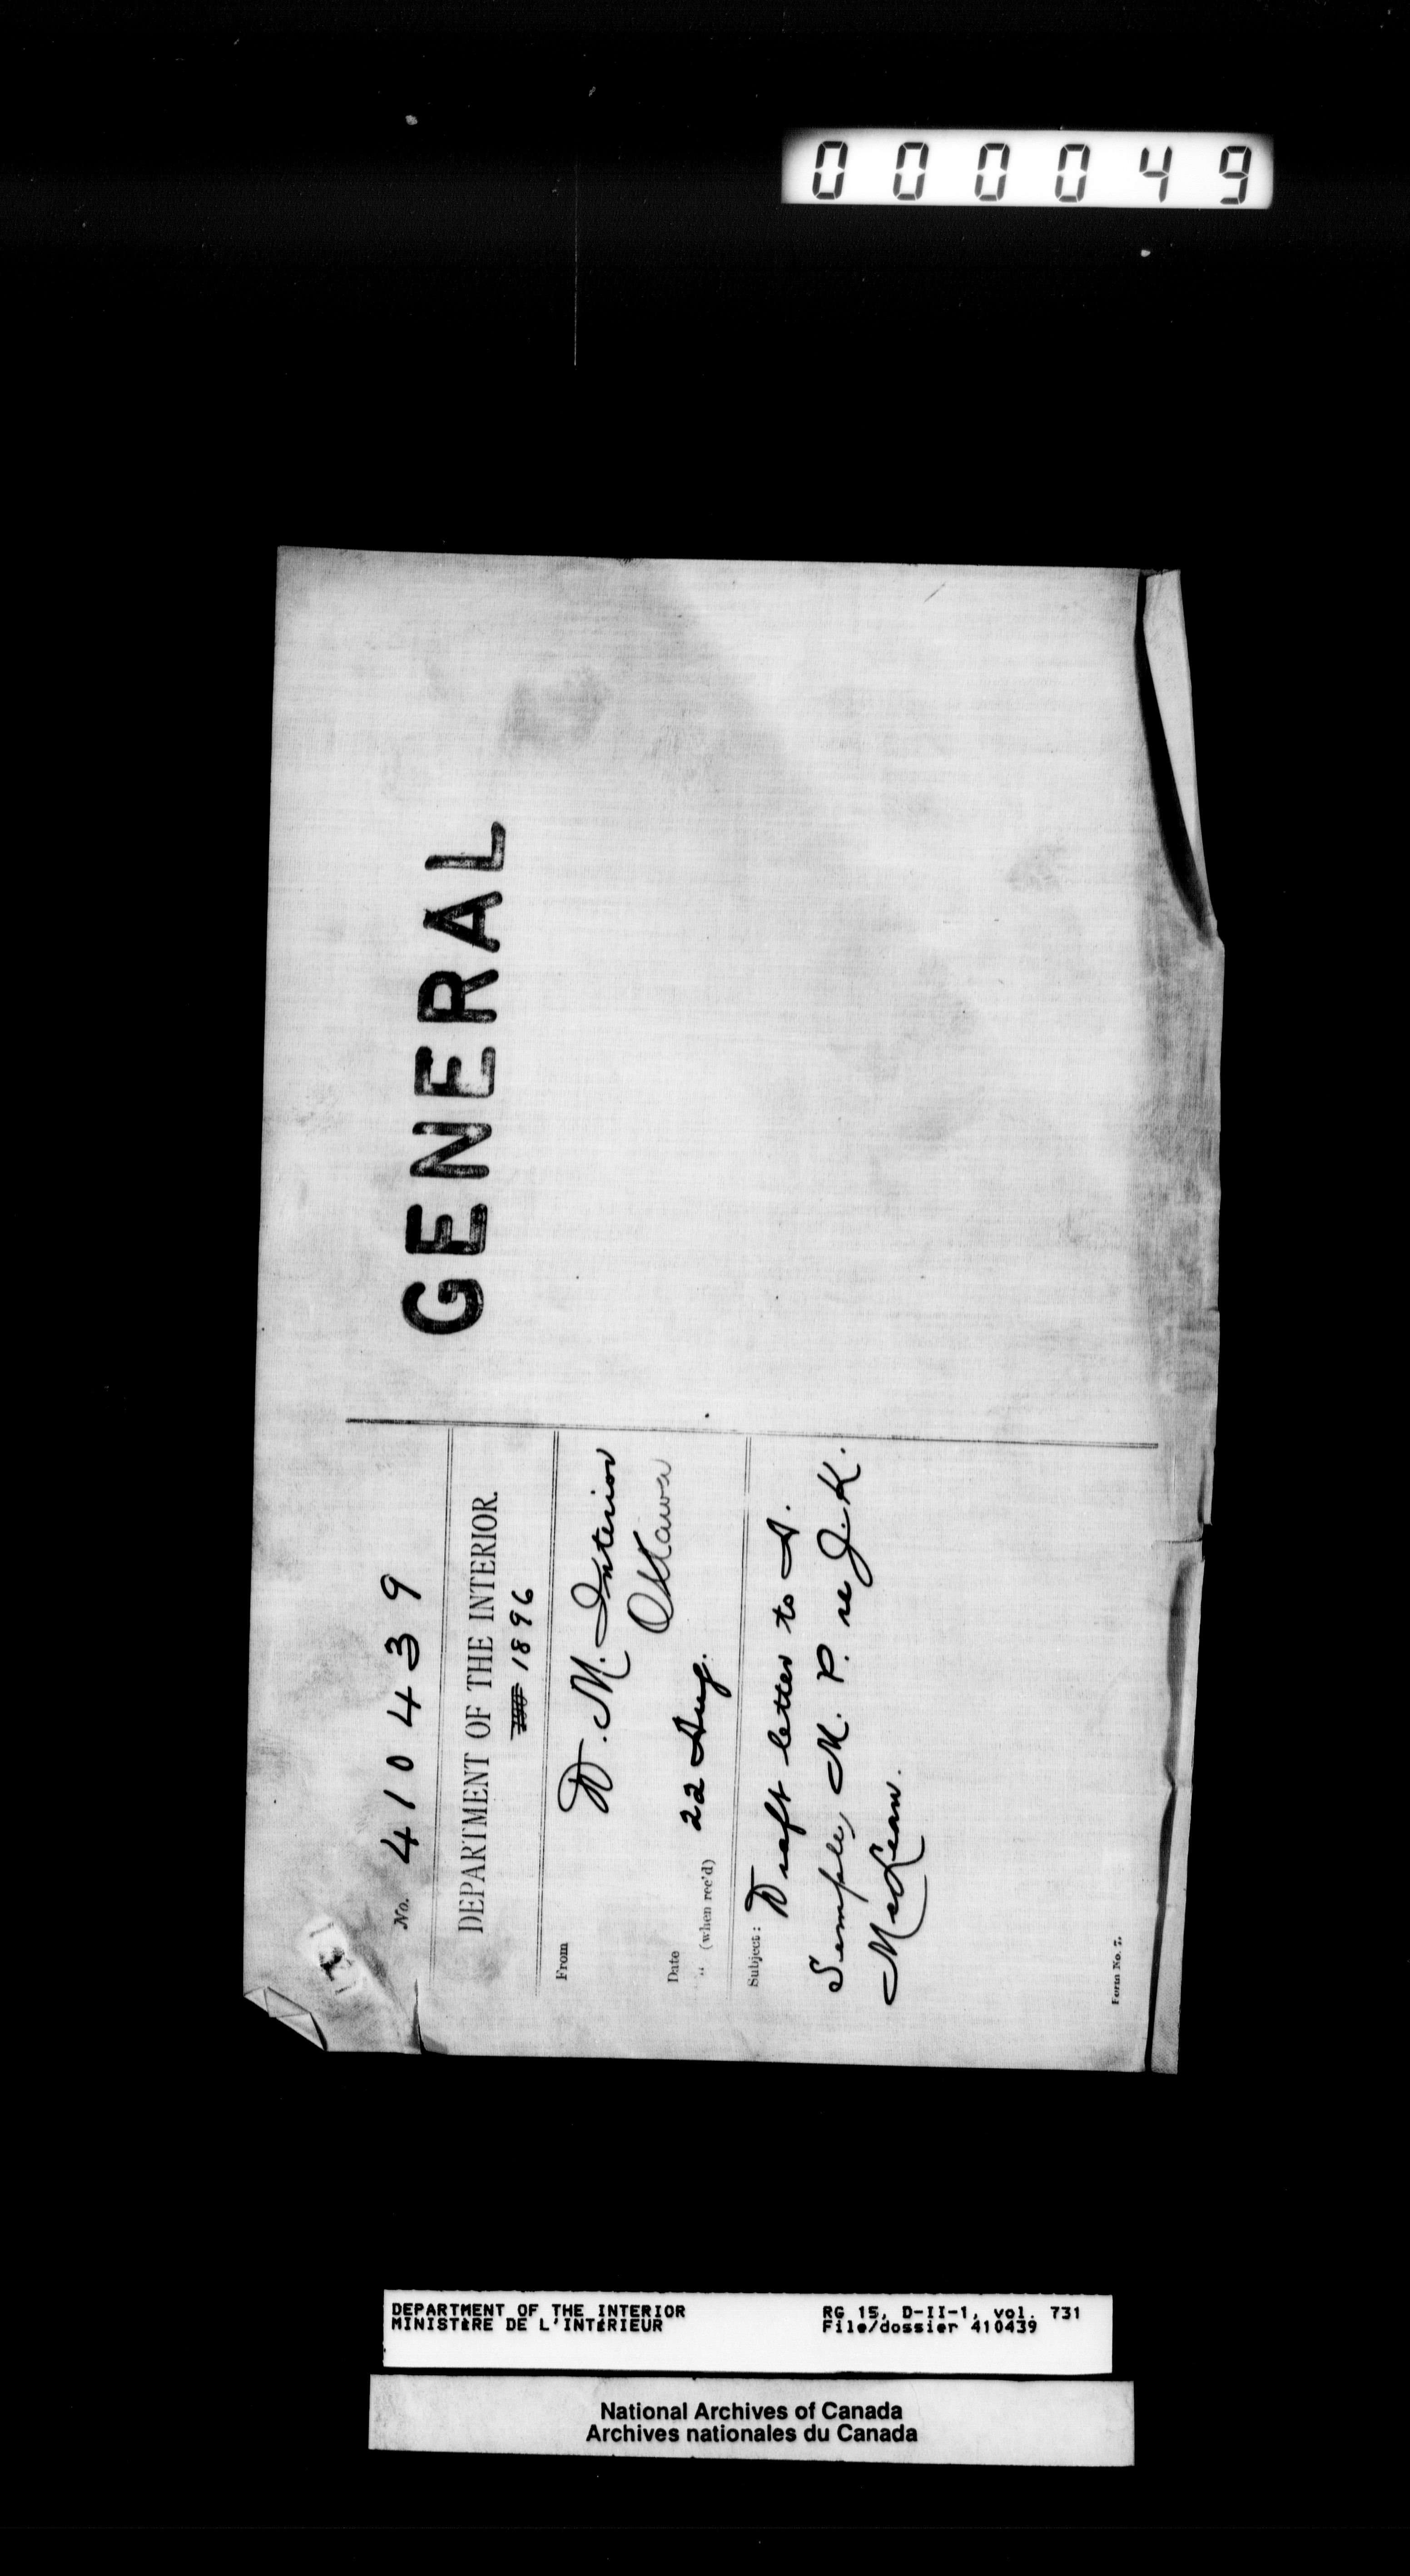 000049
GENERAL
No. 410439
DEPARTMENT OF THE INTERIOR.
1896
From D. M. Interior
Ottawa
Date 22 Aug.
" (when rec'd)
Subject: Draft letter to A.
Semple, M. P. re J. K.
McLean.
Form No. 7.
DEPARTMENT OF THE INTERIOR RG 15, D-II-1, vol. 731
MINISTÈRE DE L'INTÉRIEUR File/dossier 410439
National Archives of Canada
Archives nationales du Canada